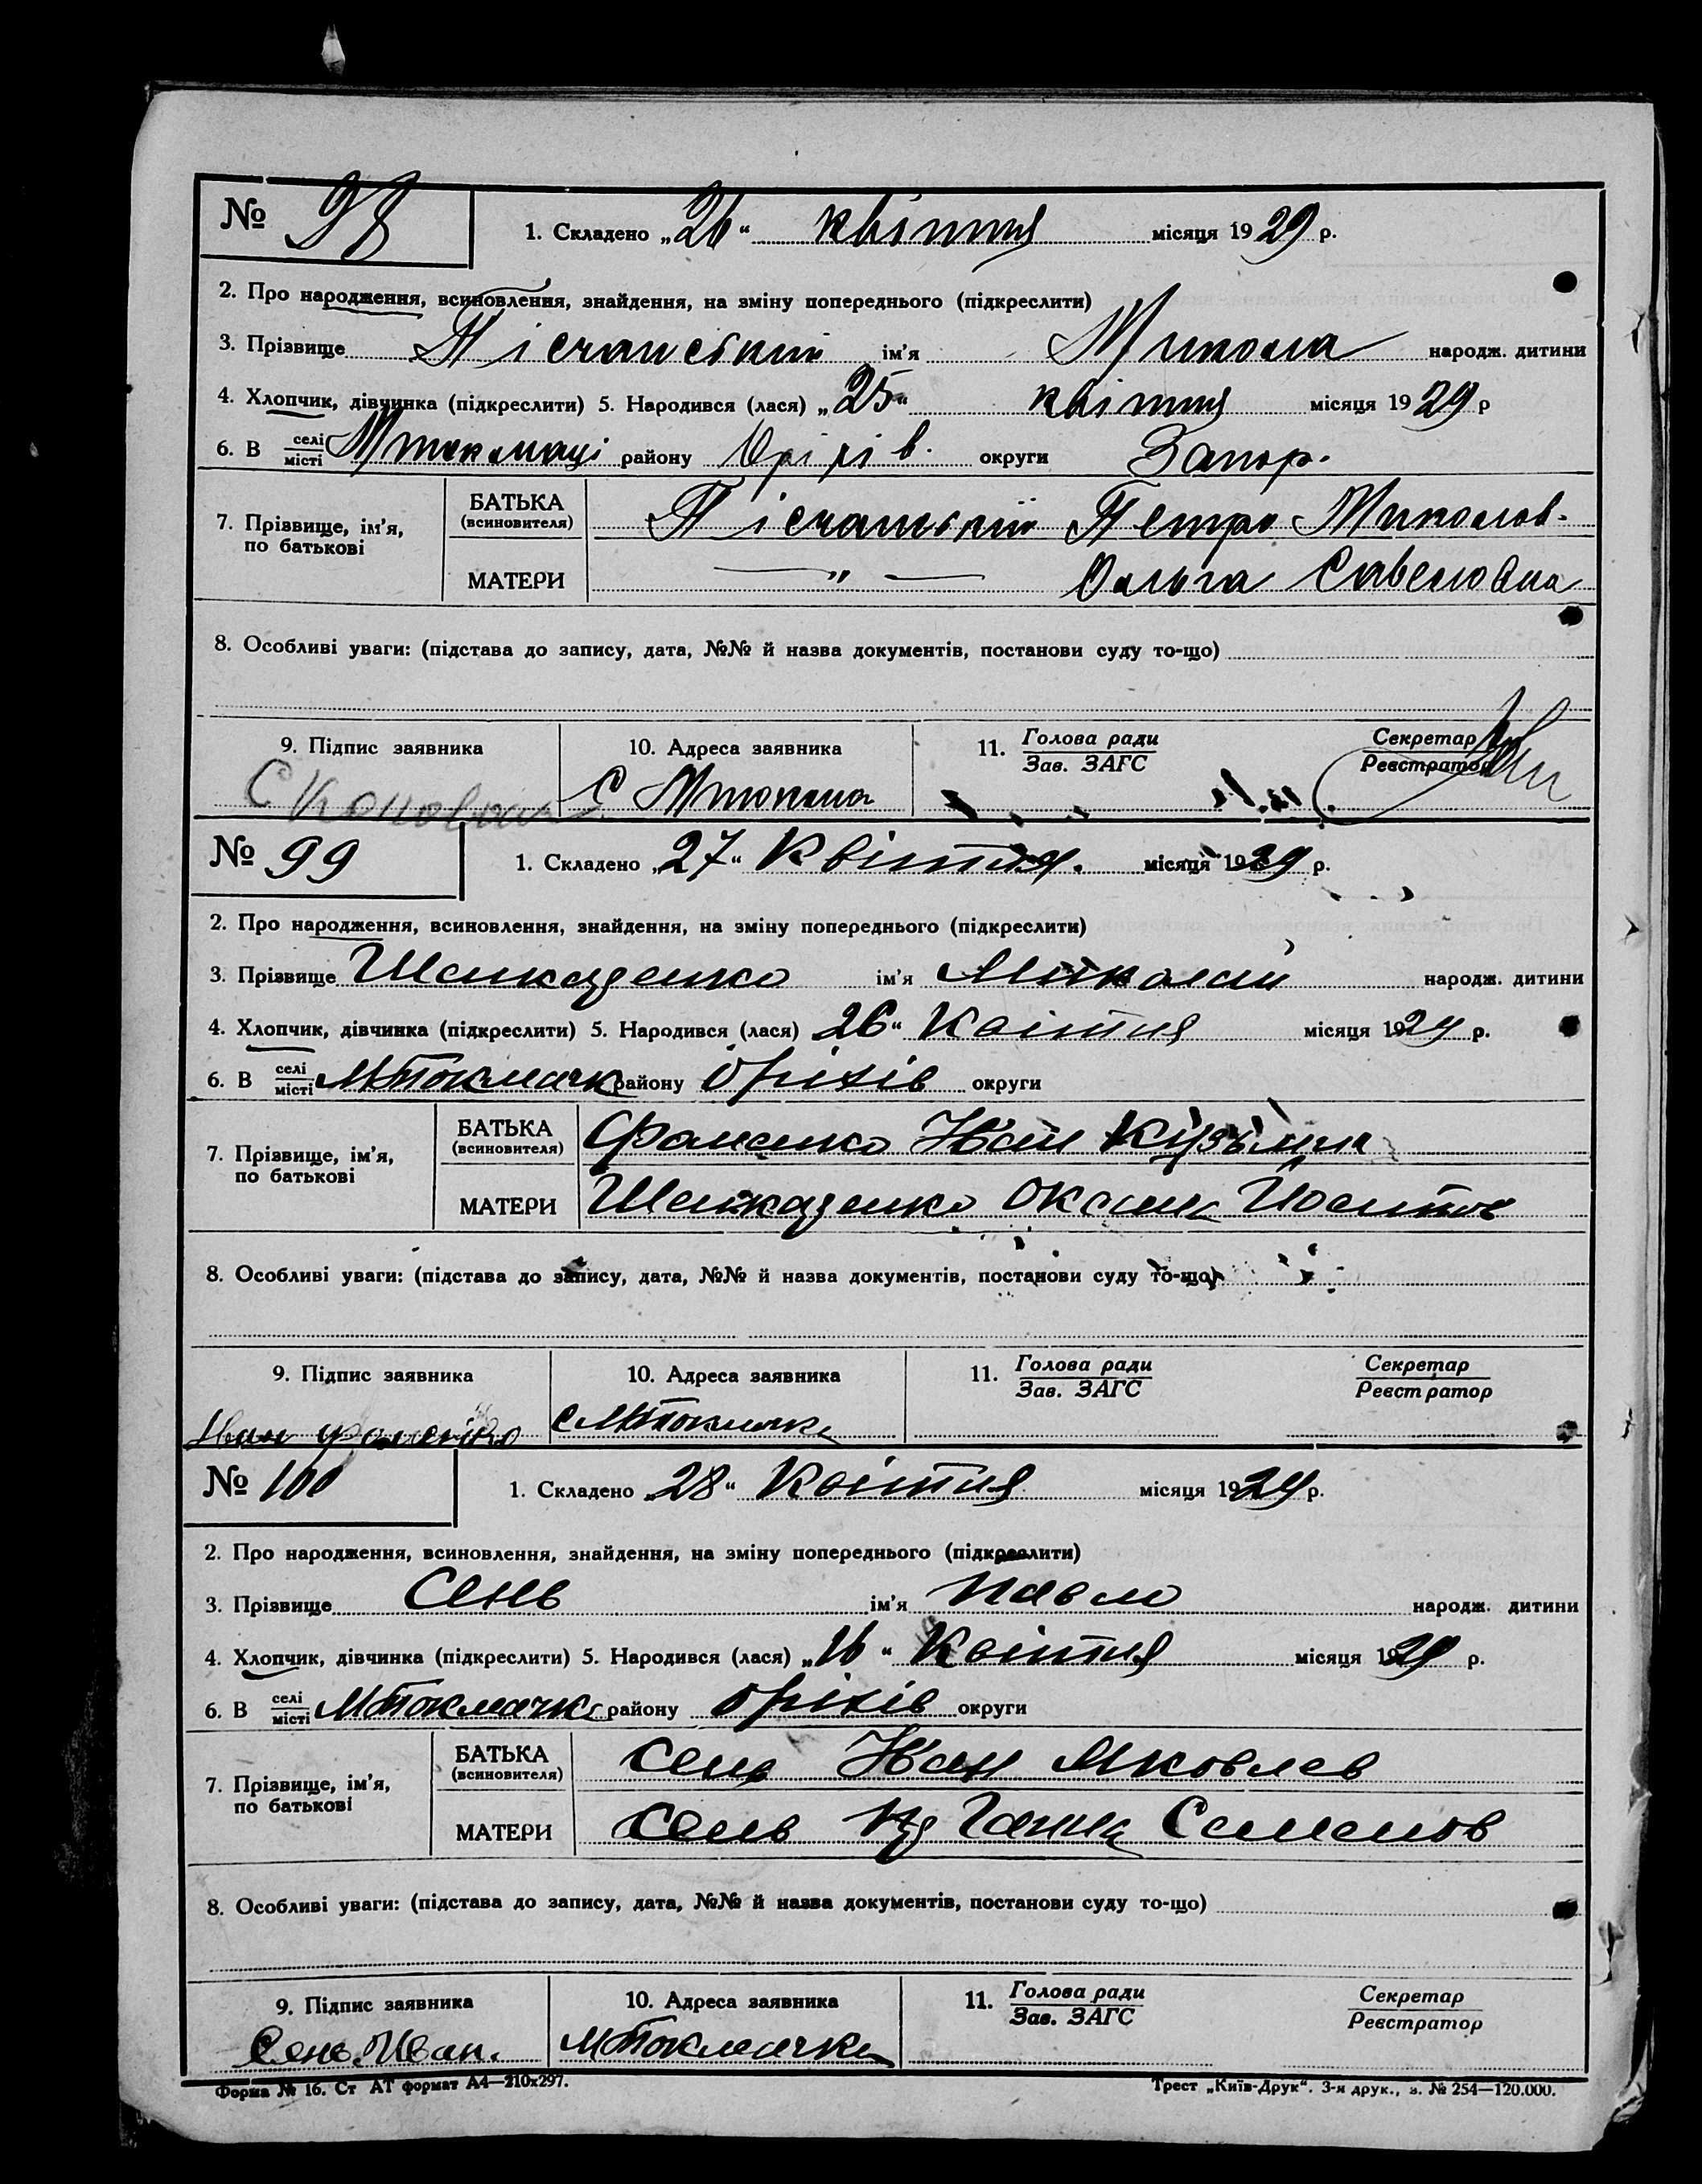 № 98
1. Складено „26“ квітня місяця 1929 р.
2. Про народження, всиновлення, знайдення, на зміну попереднього (підкреслити)
3. Прізвище Пісчанський ім'я Микола народж. дитини
4. Хлопчик, дівчинка (підкреслити) 5. Народився (лася) „25“ квітня місяця 1929 р
6. В селі місті району Оріхів. округи Запор.
7. Прізвище, ім'я, по батькові
БАТЬКА (всиновителя) Пісчанський Петро Миколов.
МАТЕРИ — „ — Ольга Савеловна
8. Особливі уваги: (підстава до запису, дата, №№ й назва документів, постанови суду то-що)
9. Підпис заявника 10. Адреса заявника 11. Голова ради Зав. ЗАГС Секретар Реєстратор
№ 99
1. Складено „27“ Квітня. місяця 1929 р.
2. Про народження, всиновлення, знайдення, на зміну попереднього (підкреслити)
3. Прізвище ім'я Миколай народж. дитини
4. Хлопчик, дівчинка (підкреслити) 5. Народився (лася) 26“ Квітня місяця 1929 р.
6. В селі місті МТокмачк району Оріхів округи
7. Прізвище, ім'я, по батькові
БАТЬКА (всиновителя) Фоменко Іван Кузьмич
МАТЕРИ Оксана Йосипов
8. Особливі уваги: (підстава до запису, дата, №№ й назва документів, постанови суду то-що)
9. Підпис заявника 10. Адреса заявника 11. Голова ради Зав. ЗАГС Секретар Реєстратор
Иван Фоменко С МТокмачка
№ 100
1. Складено „28“ Квітня місяця 1929 р.
2. Про народження, всиновлення, знайдення, на зміну попереднього (підкреслити)
3. Прізвище Сень ім'я Павло народж. дитини
4. Хлопчик, дівчинка (підкреслити) 5. Народився (лася) „16“ Квітня місяця 1929 р.
6. В селі місті МТокмачка району Оріхів округи
7. Прізвище, ім'я, по батькові
БАТЬКА (всиновителя) Сень Іван Яковлев
МАТЕРИ Сень Ганна Семенов
8. Особливі уваги: (підстава до запису, дата, №№ й назва документів, постанови суду то-що)
9. Підпис заявника 10. Адреса заявника 11. Голова ради Зав. ЗАГС Секретар Реєстратор
Сень Иван. МТокмачка
Форма № 16. Ст АТ формат А4—210х297. Трест „Київ-Друк“. 3-я друк., з. № 254—120.000.